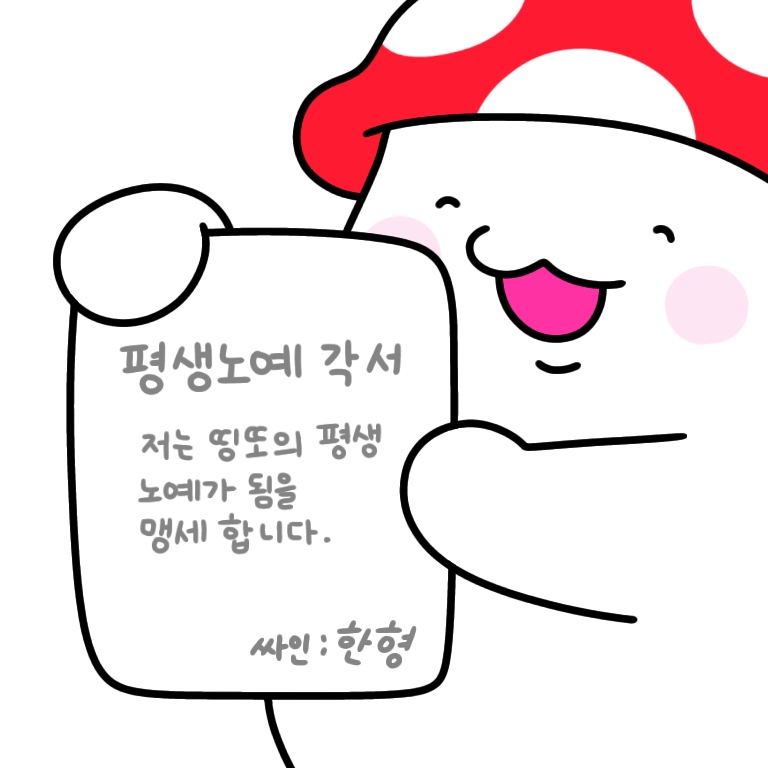 평생노예 각서
저는 띵또의 평생
노예가 됨을
맹세 합니다.
싸인 : 한형